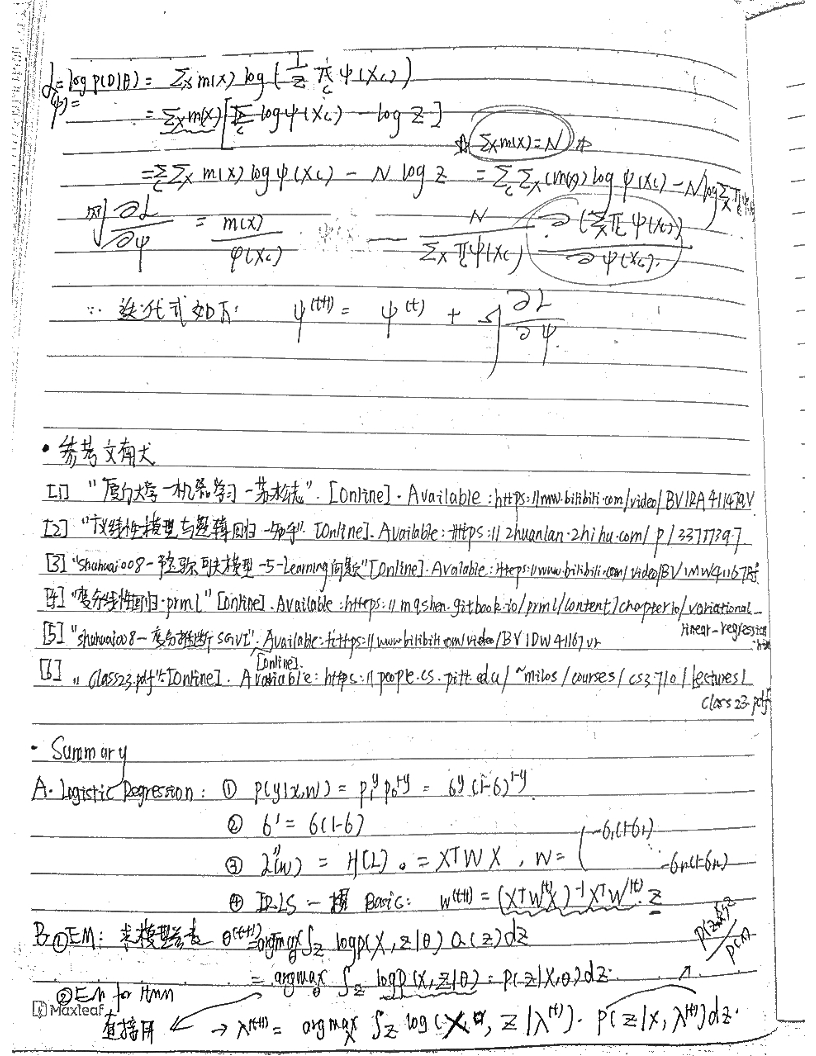 L = log p(D|θ) = Σx m(x) log ( 1/Z π_c ψ(Xc) )
= Σx m(x) [ Σ_c log ψ(Xc) − log Z ]
Σx m(x) = N
= Σ_c Σx m(x) log ψ(Xc) − N log Z = Σ_c Σx (m(x)) log ψ(Xc) − N log Σx π_c ψ(Xc)
则 ∂L/∂ψ = m(x)/ψ(Xc) − N/(Σx π_c ψ(Xc)) · ∂(Σx π_c ψ(Xc))/∂ψ(Xc).
∵ 迭代式如下: ψ^(t+1) = ψ^(t) + η ∂L/∂ψ
• 参考文献
[1] "厦门大学-机器学习-苏松志". [Online]. Available: https://www.bilibili.com/video/
[2] [Online]. Available: https://zhuanlan.zhihu.com/p/
[3] "shuhuai008- -5-Learning问题" [Online]. Available: https://www.bilibili.com/video/
[4] "变分线性回归-prml" [Online]. Available: https://mqshen.gitbook.io/prml/content/chapter10/variational-
linear-regression
[5] "shuhuai008-变分推断 SGVI". [Online]. Available: https://www.bilibili.com/video/
[6] "class23.pdf". [Online]. Available: https://people.cs.pitt.edu/~milos/courses/cs3710/lectures/
class23.pdf
• Summary
A. Logistic Regression: ① p(y|x,w) = p₁^y p₀^1-y = б^y (1-б)^1-y
② б' = б(1-б)
③ L''(w) = H(L) = XTWX, W = ( -б₁(1-б₁) -бn(1-бn)
④ IRLS - Basic: w^(t+1) = (XTW^(t)X)^-1 XTW^(t) z
B ① EM: 求模型参数 θ^(t+1) = argmax_θ ∫z log p(X,z|θ) Q(z)dz
= argmax_θ ∫z log p(X,z|θ) · p(z|X,θ)dz.
② EM for HMM
Maxleaf
直接用 → λ^(t+1) = argmax_λ ∫z log (X, z|λ^(t)) · p(z|x, λ^(t))dz.